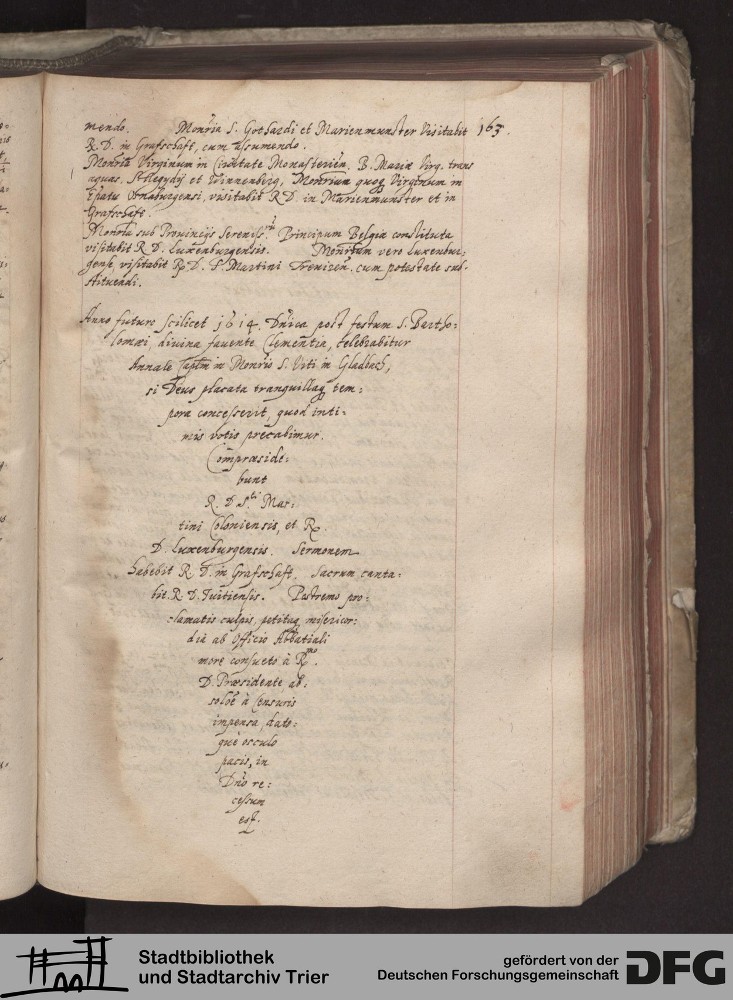 mendo. Monria S. Gothardi et Marienmunster visitabit 163.
R. D. in Grafschaft, cum assumendo.
Monria Virginum in Civitate Monasterien, B. Mariæ Virg. trans
aquas, St Aegydij et Vinnenberg, Monrium quoq Virginum in
Epatu Osnaburgensi, visitabit R D. in Marienmunster et in
Grafschaft.
Monria sub Provincijs Sereniss. Principum Belgiæ constituta
visitabit R D. Luxemburgensis. Monrium vero Luxembur:
gense, visitabit R. D. S. Martini Treviren. cum potestate sub-
stituendi.
Anno futuro scilicet 1614. Dnica post festum S. Bartho:
lomæi, divina favente Clementia, celebrabitur
Annale Captm in Monrio S. Viti in Gladbach,
si Deus placata tranquillaq tem:
pora concesserit, quod inti:
mis votis precabimur.
Compræside:
bunt
R. D S.ti Mar:
tini Coloniensis, et R.
D. Luxenburgensis. Sermonem
habebit R D. in Grafschaft. Sacrum canta:
bit R. D. Tuitiensis. Postremo pro:
clamatis culpis, petitaq misericor:
dia ab officio Abbatiali
more consueto à Rmo.
D. Præsidente ab:
solòe à Censuris
impensa, dato:
què osculo
pacis, in
Dno re:
cessum
est.
Stadtbibliothek
und Stadtarchiv Trier
gefördert von der
Deutschen Forschungsgemeinschaft DFG